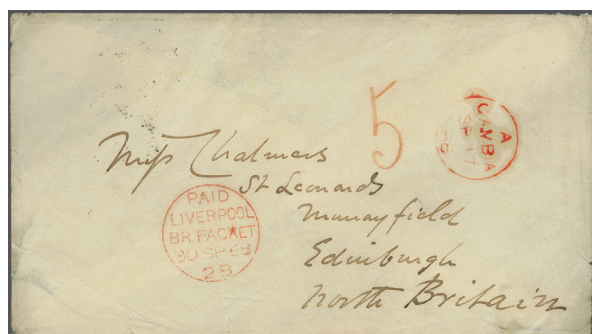 5
A
GAMBIA
SP 17
Miss Chalmers
St Leonards
Murrayfield
Edinburgh
North Britain
PAID
LIVERPOOL
BR. PACKET
30 SP
2B